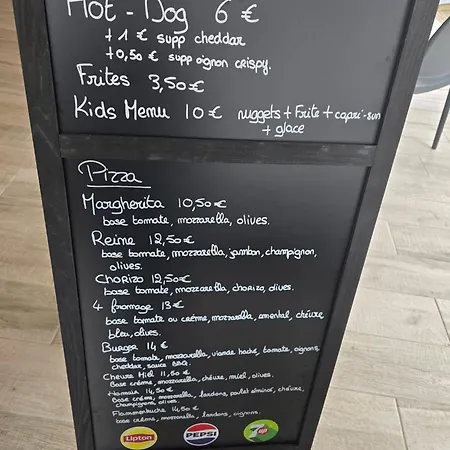 Hot-Dog 6 €
+ 1 € supp cheddar
+ 0,50 € supp oignon crispy.
Frites 3,50 €
Kids Menu 10 € nuggets + Frite + capri-sun
+ glace
Pizza
Margherita 10,50 €
base tomate, mozzarella, olives.
Reine 12,50 €
base tomate, mozzarella, jambon, champignon,
olives.
Chorizo 12,50 €
base tomate, mozzarella, chorizo, olives.
4 fromage 13 €
base tomate ou crème, mozzarella, emental, chèvre,
bleu, olives.
Burger 14 €
base tomate, mozzarella, viande haché, tomate, oignons,
cheddar, sauce BBQ.
Chevre Miel 11,50 €
Base crème, mozzarella, chèvre, miel, olives.
14,50 €
Base crème, mozzarella, lardons, poulet chèvre,
champignons, olives.
Flammenkuche 14,50 €
base crème, mozzarella, lardons, oignons.
Lipton
PEPSI
7up